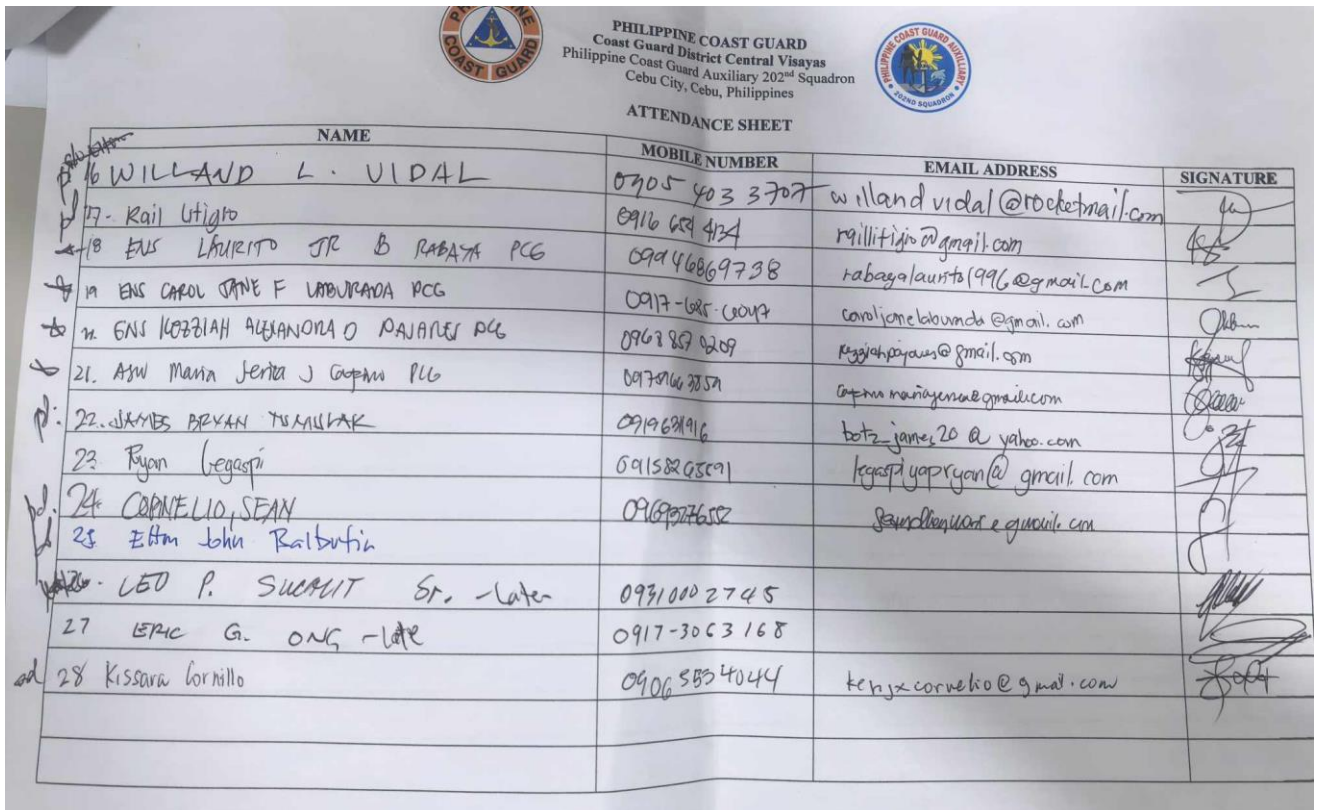 PHILIPPINE COAST GUARD
PHILIPPINE COAST GUARD
Coast Guard District Central Visayas
Philippine Coast Guard Auxiliary 202nd Squadron
Cebu City, Cebu, Philippines
PHILIPPINE COAST GUARD AUXILIARY
202ND SQUADRON
ATTENDANCE SHEET
NAME MOBILE NUMBER EMAIL ADDRESS SIGNATURE
16 WILLAND L. VIDAL 0905 403 3707 willandvidal@rocketmail.com
17- Rail Litigio 0916 654 4134 raillitigio@gmail.com
18 ENS LAURITO JR B RABAYA PCG 09946869738 rabayalaurito1996@gmail.com
19 ENS CAROL JANE F LABURADA PCG 0917-685-6047 caroljanelaburada@gmail.com
ENS KEZZIAH ALEXANDRA O PAJARES PCG 0963 857 0209 kezziahpajares@gmail.com
21. ASW Maria Jeriza J PCG
22. JAMES BRYAN TUMULAK 0919631916 botz_james20@yahoo.com
23 Ryan Legaspi legaspiyapryan@gmail.com
24 CORNELIO, SEAN 09693276552
25 Elton John Balbutin
LEO P. SUCALIT Sr. -Later 09310002745
27 ERIC G. ONG -late 0917-3063168
28 Kissara Cornillo 09065534044 kenjxcornelio@gmail.com